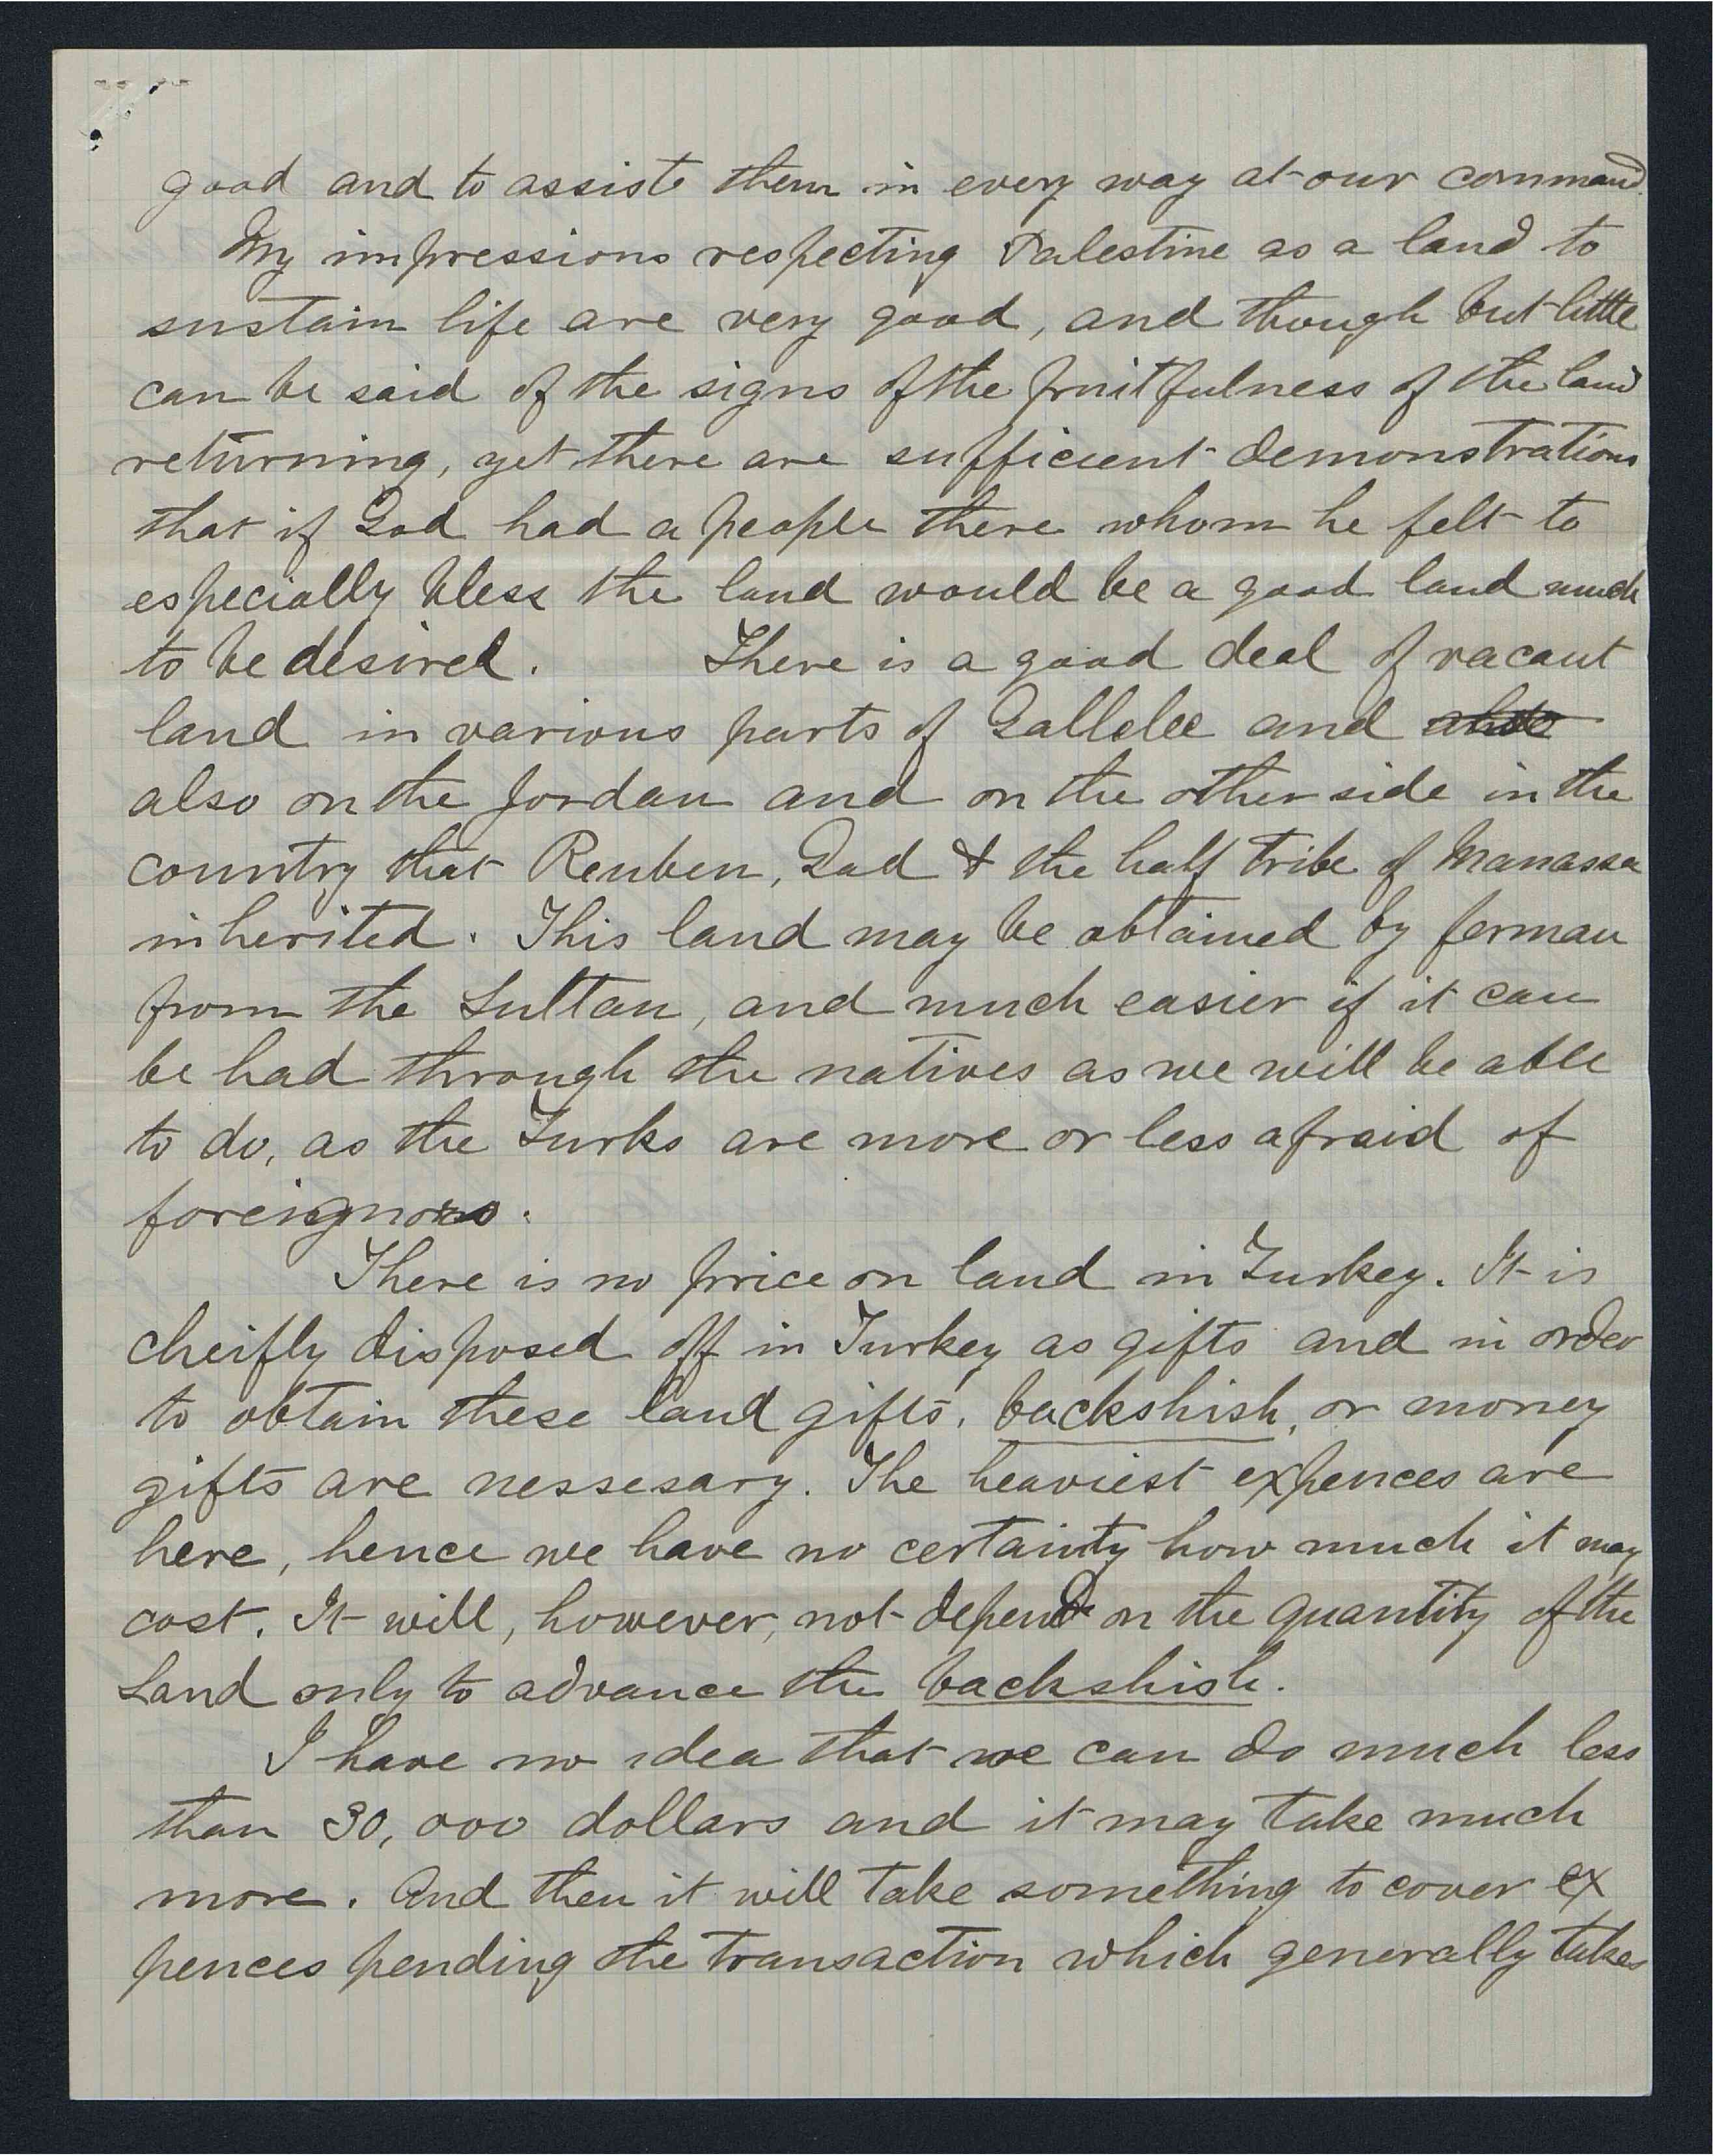 good and to assist them in every way at our command.
My impressions respecting Palestine as a land to
sustain life are very good, and though but little
can be said of the signs of the fruitfulness of the land
returning, yet there are sufficient demonstrations
that if God had a people there whom he felt to
especially bless the land would be a good land much
to be desired. There is a good deal of vacant
land in various parts of Gallelee and
also on the Jordan and on the other side in the
country that Reuben, Gad & the half tribe of Manassa
inherited. This land may be obtained by ferman
from the Sultan, and much easier if it can
be had through the natives as we will be able
to do, as the Turks are more or less afraid of
foreignors.
There is no price on land in Turkey. It is
cheifly disposed off in Turkey as gifts and in order
to obtain these land gifts, backshish, or money
gifts are nessesary. The heaviest expences are
here, hence we have no certainty how much it may
cost. It will, however, not depend on the quantity of the
Land only to advance the backshish.
I have no idea that we can do much less
than 30,000 dollars and it may take much
more. And then it will take something to cover ex
pences pending the transaction which generally takes